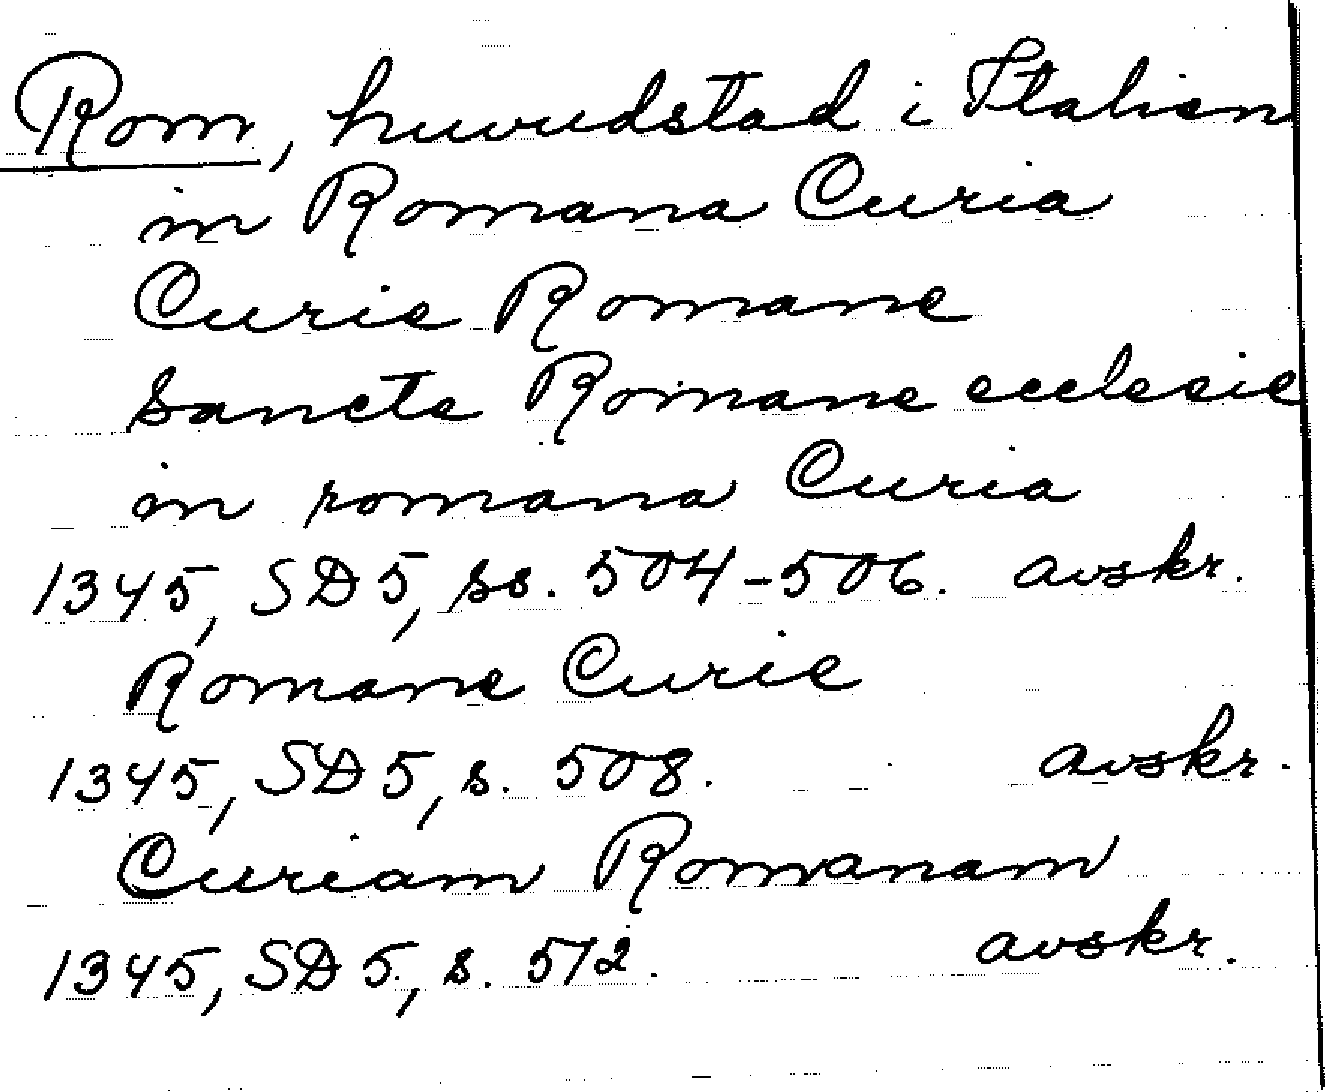 Rom, huvudstad i Italien
in Romana Curia
Curie Romane
Sancte Romane ecclesie
in romana Curia
1345, SD 5, ss. 504-506. avskr.
Romane Curie
1345, SD 5, s. 508. avskr.
Curiam Romanam
1345, SD 5, s. 512. avskr.